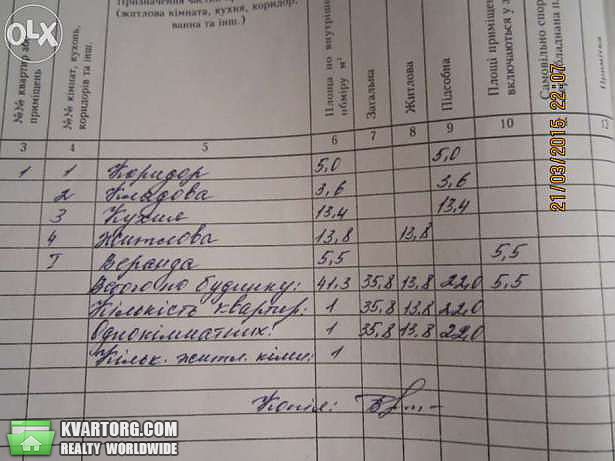 OLX
Призначення
(житлова кімната, кухня, коридор,
ванна та інш.)
№№ квартир
приміщень
№№ кімнат, кухонь,
коридорів та інш.
Площа по внутрішньому
обміру м²
Загальна
Житлова
Підсобна
Площі приміщень
включаються у з
Самовільно
обладнана п.
3 4 5 6 7 8 9 10 11
1 1 Коридор 5,0 5,0
2 Кладова 3,6 3,6
3 Кухня 13,4 13,4
4 Житлова 13,8 13,8
I Веранда 5,5 5,5
Всього по будинку: 41,3 35,8 13,8 22,0 5,5
Кількість квартир: 1 35,8 13,8 22,0
Однокімнатних: 1 35,8 13,8 22,0
Кільк. житл. кімн: 1
Копія:
21/03/2015 22:07
KVARTORG.COM
REALTY WORLDWIDE